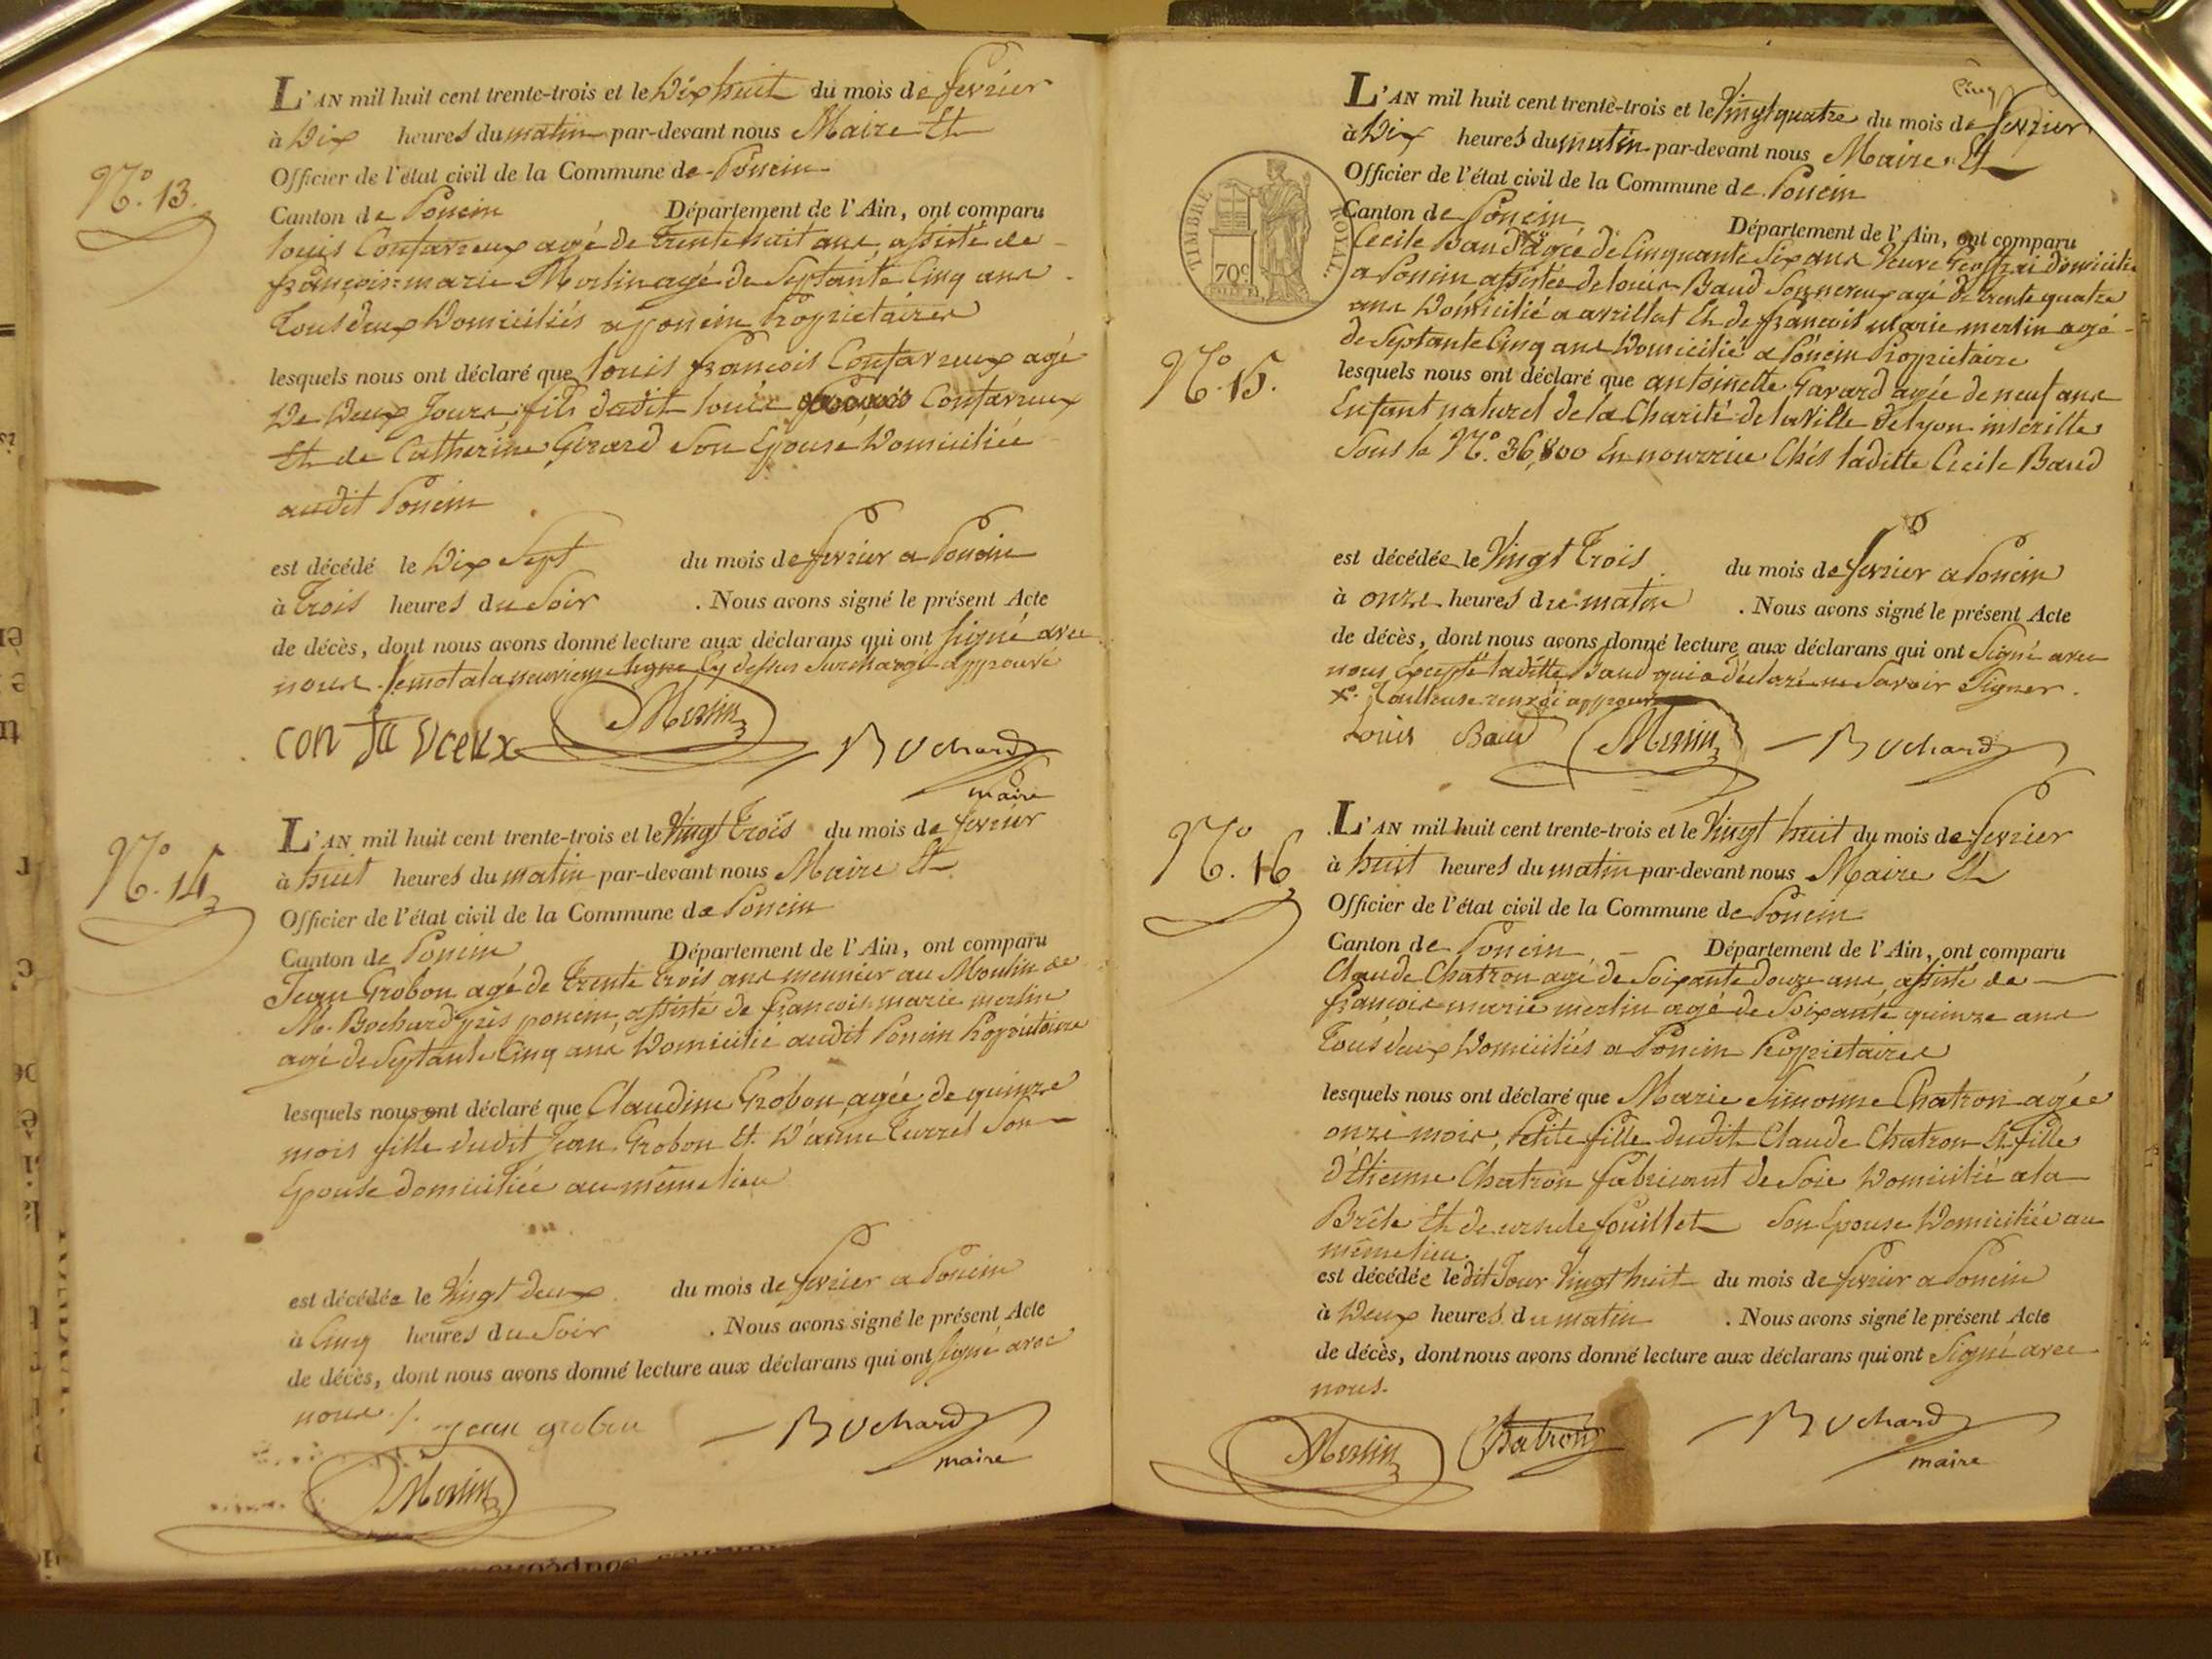 L'AN mil huit cent trente-trois et le Dix huit du mois de fevrier
à Dix heures du matin par-devant nous Maire Et
Officier de l'état civil de la Commune de Poncin
N.° 13.
Canton de Poncin Département de l'Ain, ont comparu
louis Contavreux agé de trente huit ans, assisté de
françois-marie Merlin agé de Septante Cinq ans
tous deux Domiciliés a poncin Proprietaires
lesquels nous ont déclaré que louis françois Contavreux agé
De Deux Jours fils dudit louis Contavreux
Et de Catherine Gerard Son Epouse Domiciliée
audit Poncin
est décédé le Dix Sept du mois de fevrier a Poncin
à trois heures du Soir . Nous avons signé le présent Acte
de décès, dont nous avons donné lecture aux déclarans qui ont Signé avec
nous. le mot a la neuvieme ligne Cy dessus Surchargé approuvé
contavreux Merlin Bochard
maire
L'AN mil huit cent trente-trois et le Vingt trois du mois de fevrier
N.° 14
à huit heures du matin par-devant nous Maire Et
Officier de l'état civil de la Commune de Poncin
Canton de Poncin Département de l'Ain, ont comparu
Jean Grobon agé de trente trois ans meunier au Moulin de
M. Bochard près poncin, assisté de françois-marie merlin
agé de Septante Cinq ans Domicilié audit Poncin Proprietaire
lesquels nous ont déclaré que Claudine Grobon, agée de quinze
mois fille dudit Jean Grobon Et D'anne Turrel Son
Epouse domiciliée au même lieu
est décédée le Vingt deux du mois de fevrier a Poncin
à Cinq heures du Soir . Nous avons signé le présent Acte
de décès, dont nous avons donné lecture aux déclarans qui ont Signé avec
nous ./. jean grobon Bochard
maire
Merlin
Cinq
L'AN mil huit cent trente-trois et le Vingt quatre du mois de fevrier
à Dix heures du matin par-devant nous Maire Et
Officier de l'état civil de la Commune de Poncin
TIMBRE ROYAL.
70c
Canton de Poncin Département de l'Ain, ont comparu
Cecile Baud agée de Cinquante Six ans Veuve Geoffrai domicilie
a Poncin assistée de louis Baud Son neveux agé de trente quatre
ans Domicilié a avrillat Et de françois marie merlin agé
de Septante Cinq ans Domicilié a Poncin Proprietaire
N.° 15.
lesquels nous ont déclaré que antoinette Gavard agée de neuf ans
Enfant naturel de la Charité de la Ville de lyon inscritte
Sous le N.° 36,800 En nourrice Chés laditte Cecile Baud
est décédée le Vingt trois du mois de fevrier a Poncin
à onze heures du matin . Nous avons signé le présent Acte
de décès, dont nous avons donné lecture aux déclarans qui ont Signé avec
nous Excepté laditte Baud qui a déclaré ne Savoir Signer.
renvoi approuvé
Louis Baud Merlin Bochard
L'AN mil huit cent trente-trois et le Vingt huit du mois de fevrier
N.° 16
à huit heures du matin par-devant nous Maire Et
Officier de l'état civil de la Commune de Poncin
Canton de Poncin Département de l'Ain, ont comparu
Claude Chatron agé de Soixante Douze ans, assisté de
françois marie merlin agé de Soixante quinze ans
tous deux Domiciliés a Poncin Proprietaires
lesquels nous ont déclaré que Marie Simonne Chatron agée
onze mois, Petite fille dudit Claude Chatron Et fille
d'Etienne Chatron fabricant de Soie Domicilié a la
Brêle Et de ursule fouillet Son Epouse Domiciliée au
même lieu.
est décédée le dit Jour Vingt huit du mois de fevrier a Poncin
à Deux heures du matin . Nous avons signé le présent Acte
de décès, dont nous avons donné lecture aux déclarans qui ont Signé avec
nous.
Merlin Chatron Bochard
maire